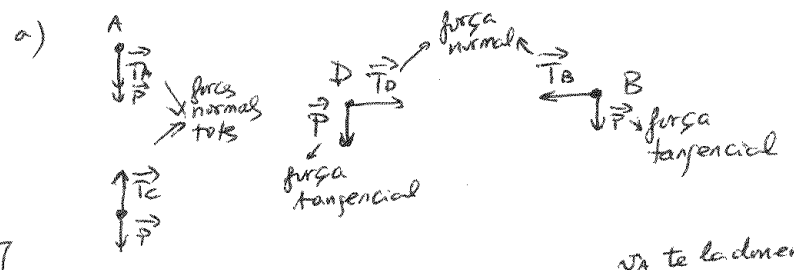 a)
A
T_A
P
forces
normals
totes
T_C
P
D
T_D
P
força
tangencial
força
normal
T_B
B
P
força
tangencial
v_A te la donen